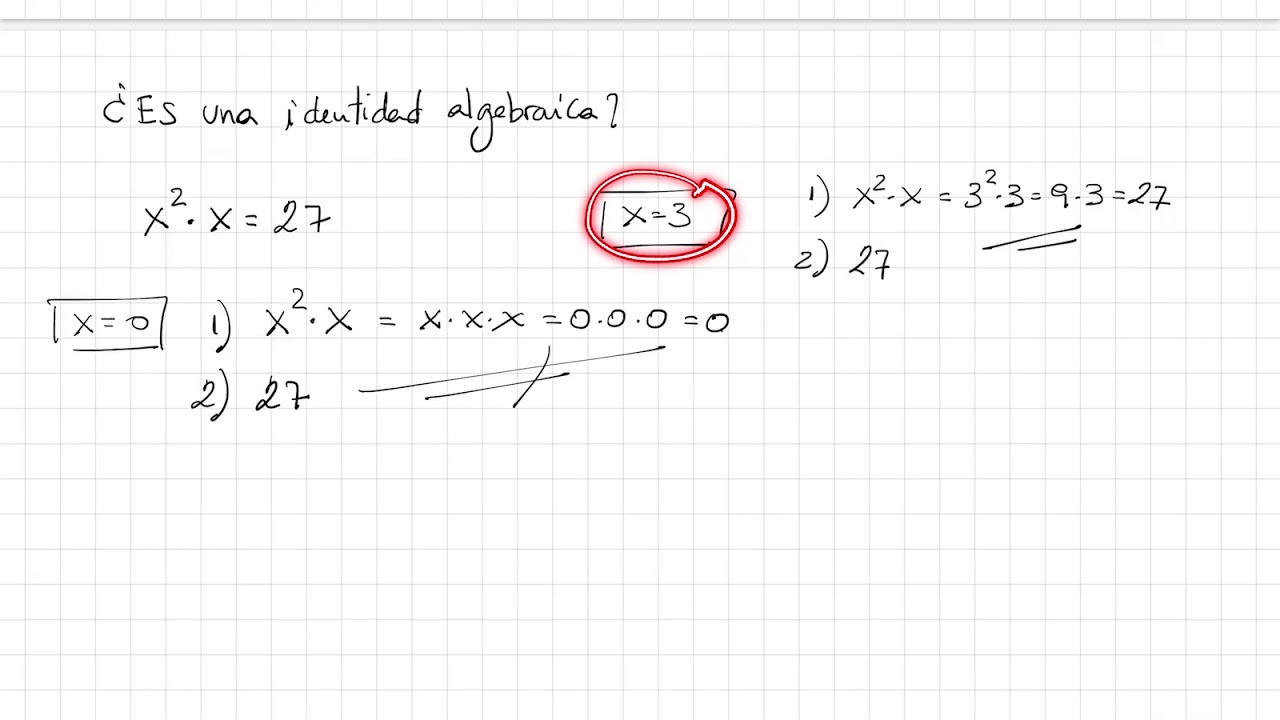 ¿Es una identidad algebraica?
x² · x = 27
x=3
1) x² · x = 3² · 3 = 9 · 3 = 27
2) 27
x=0
1) x² · x = x · x · x = 0 · 0 · 0 = 0
2) 27